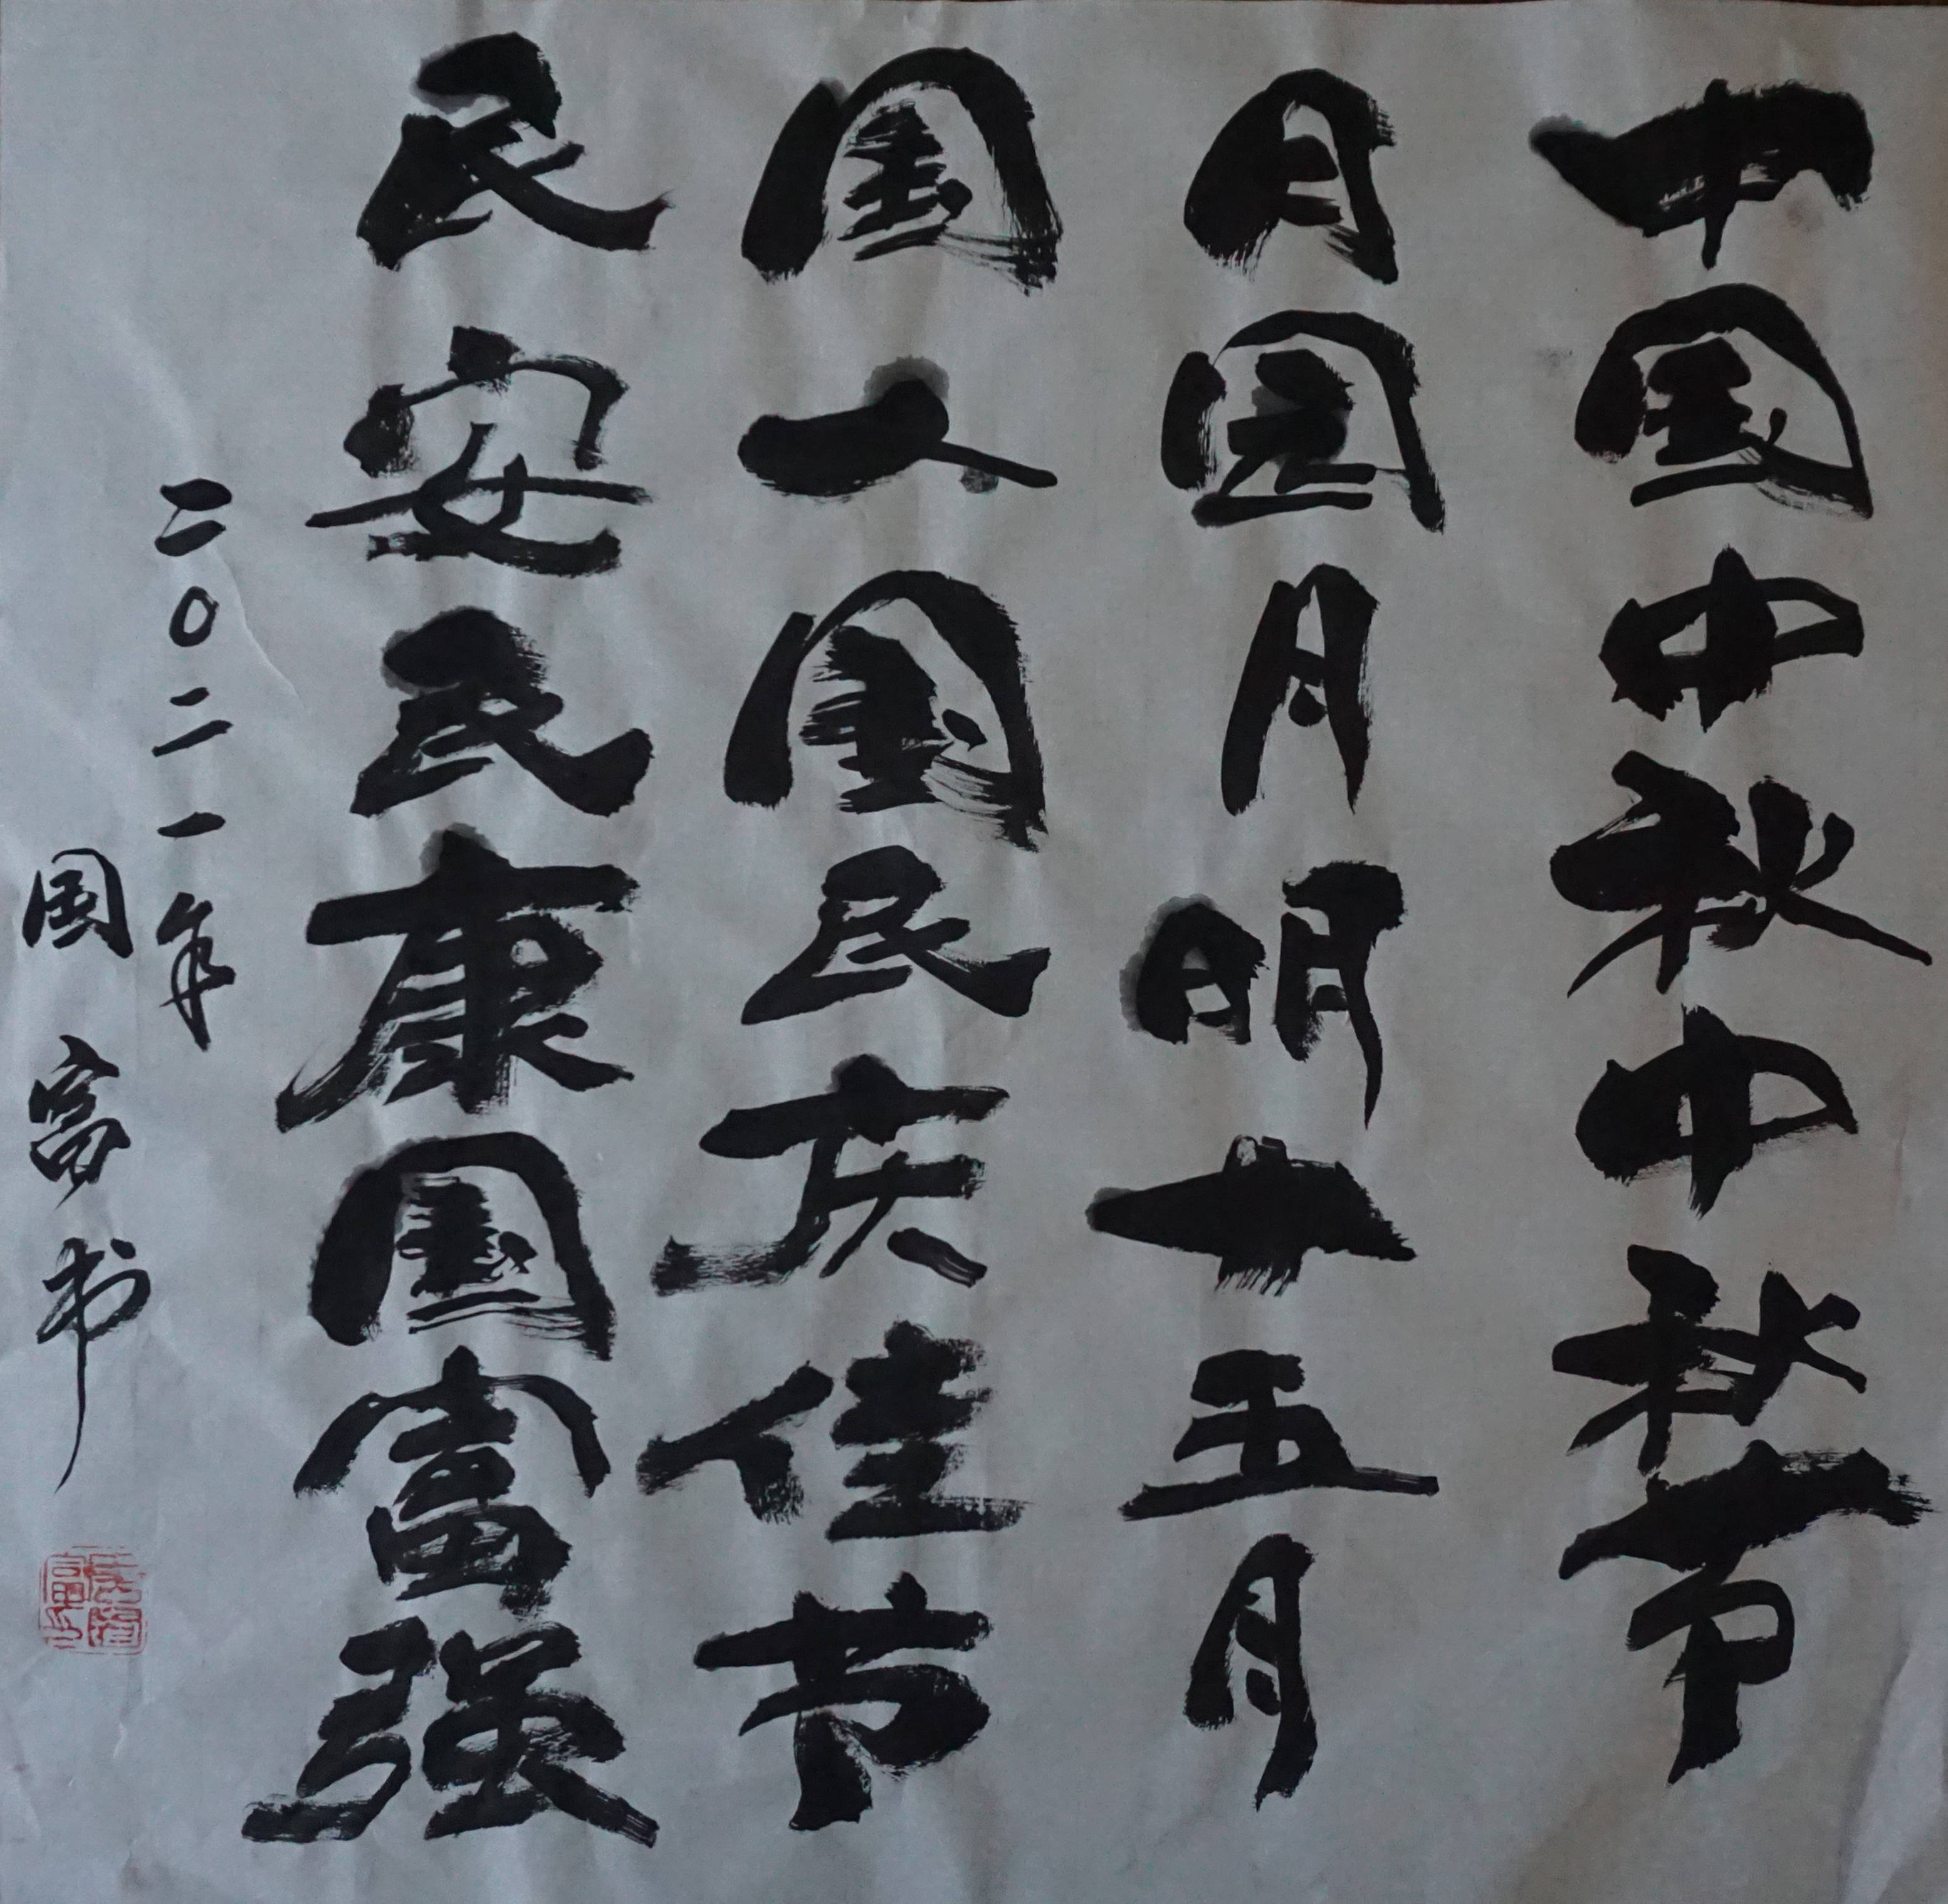 中国中秋中秋节
月园月明十五月
国人国民庆佳节
民安民康国富强
二〇二一年
国富书